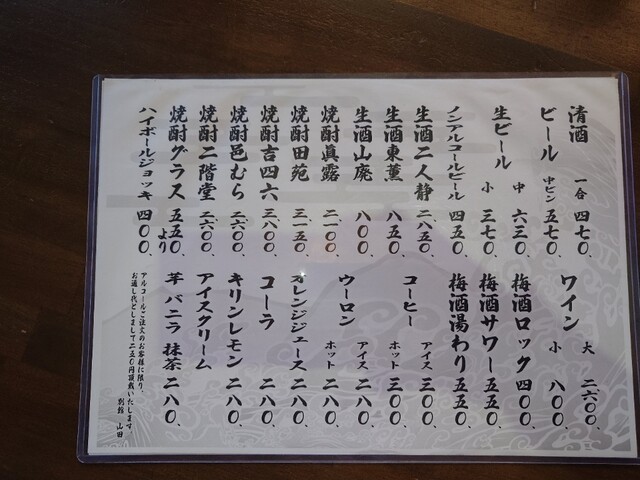 清酒 一合 四七〇、
ビール 中ビン 五七〇、
生ビール 中 六三〇、
小 三七〇、
ノンアルコールビール 四五〇、
生酒二人静 二、八五〇、
生酒東薫 八五〇、
生酒山廃 八〇〇、
焼酎眞露 二、一〇〇、
焼酎田苑 三、一五〇、
焼酎吉四六 三、八〇〇、
焼酎邑むら 二、六〇〇、
焼酎二階堂 二、六〇〇、
焼酎グラス 五五〇、より
ハイボールジョッキ 四〇〇、
ワイン 大 二、六〇〇、
小 八〇〇、
梅酒ロック 四〇〇、
梅酒サワー 五五〇、
梅酒湯わり 五五〇、
コーヒー アイス 三〇〇、
ホット 三〇〇、
ウーロン アイス 二八〇、
ホット 二八〇、
オレンジジュース 二八〇、
コーラ 二八〇、
キリンレモン 二八〇、
アイスクリーム
芋 バニラ 抹茶 二八〇、
アルコールご注文のお客様に限り、
お通し代としまして二五〇円頂戴いたします。
別館 山田